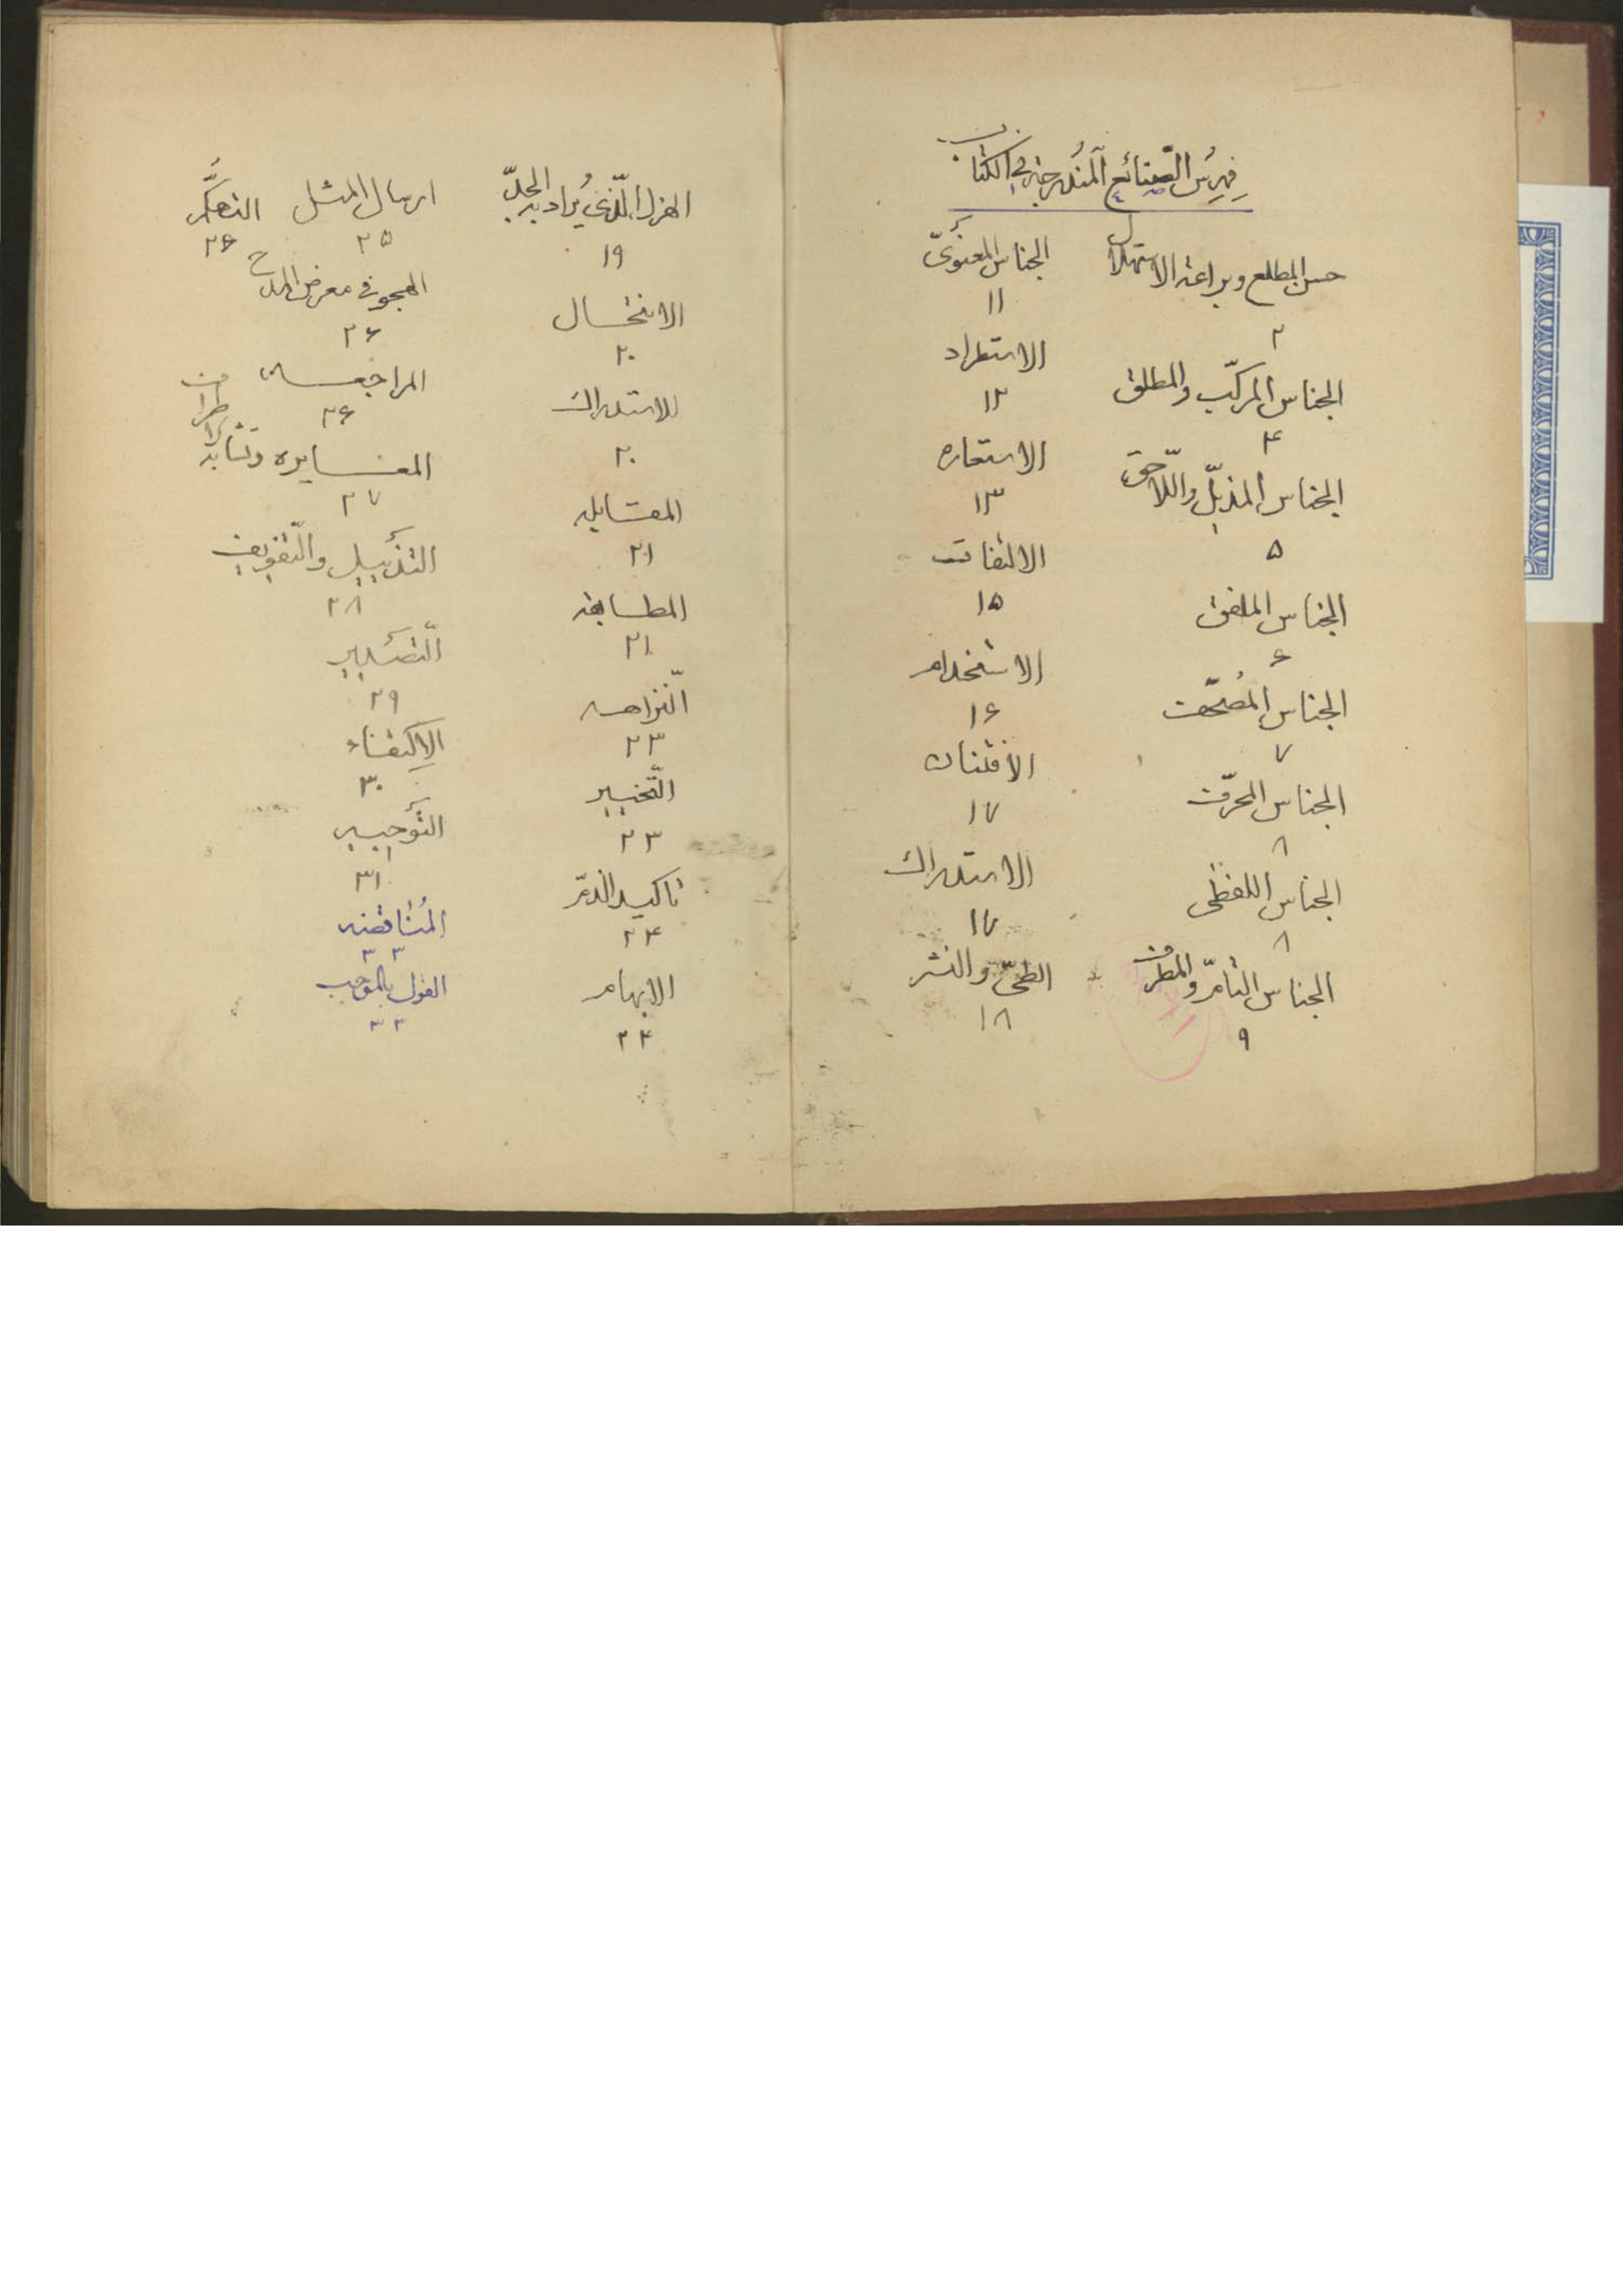 فهرسُ الصّنائع المُندرجة في الكتاب
حسن المطلع وبراعة الاستهلال
۲
الجناس المركّب والمطلق
۴
الجناس المذيّل واللّاحق
۵
الجناس الملفق
۶
الجناس المُصحّف
۷
الجناس المحرّف
۸
الجناس اللفظى
۸
الجناس التامّ والمطرف
۹
الجناس المعنوىّ
۱۱
الاستطراد
۱۲
الاستعاره
۱۳
الالتفات
۱۵
الاستخدام
۱۶
الافتنان
۱۷
الاستدراك
۱۷
الطىّ والنشر
۱۸
الهزل الّذي يُراد به الجدّ
۱۹
الانتحـال
۲۰
للاستدراك
۲۰
المقـابله
۲۱
المطـابقه
۲۱
النّزاهـه
۲۳
التّخيير
۲۳
تاكيد الذمّ
۲۴
الابهام
۲۴
ارسال المثـل
۲۵
التهكّم
۲۶
الهجو فى معرض المدح
۲۶
المراجعـه
۲۶
المغـايره وتشابه الاطراف
۲۷
التذييل والتّفويف
۲۸
التّصدير
۲۹
الاِكتفاء
۳۰
التوجيـه
۳۱
المُناقضه
۳۳
القول بالموجب
۳۳